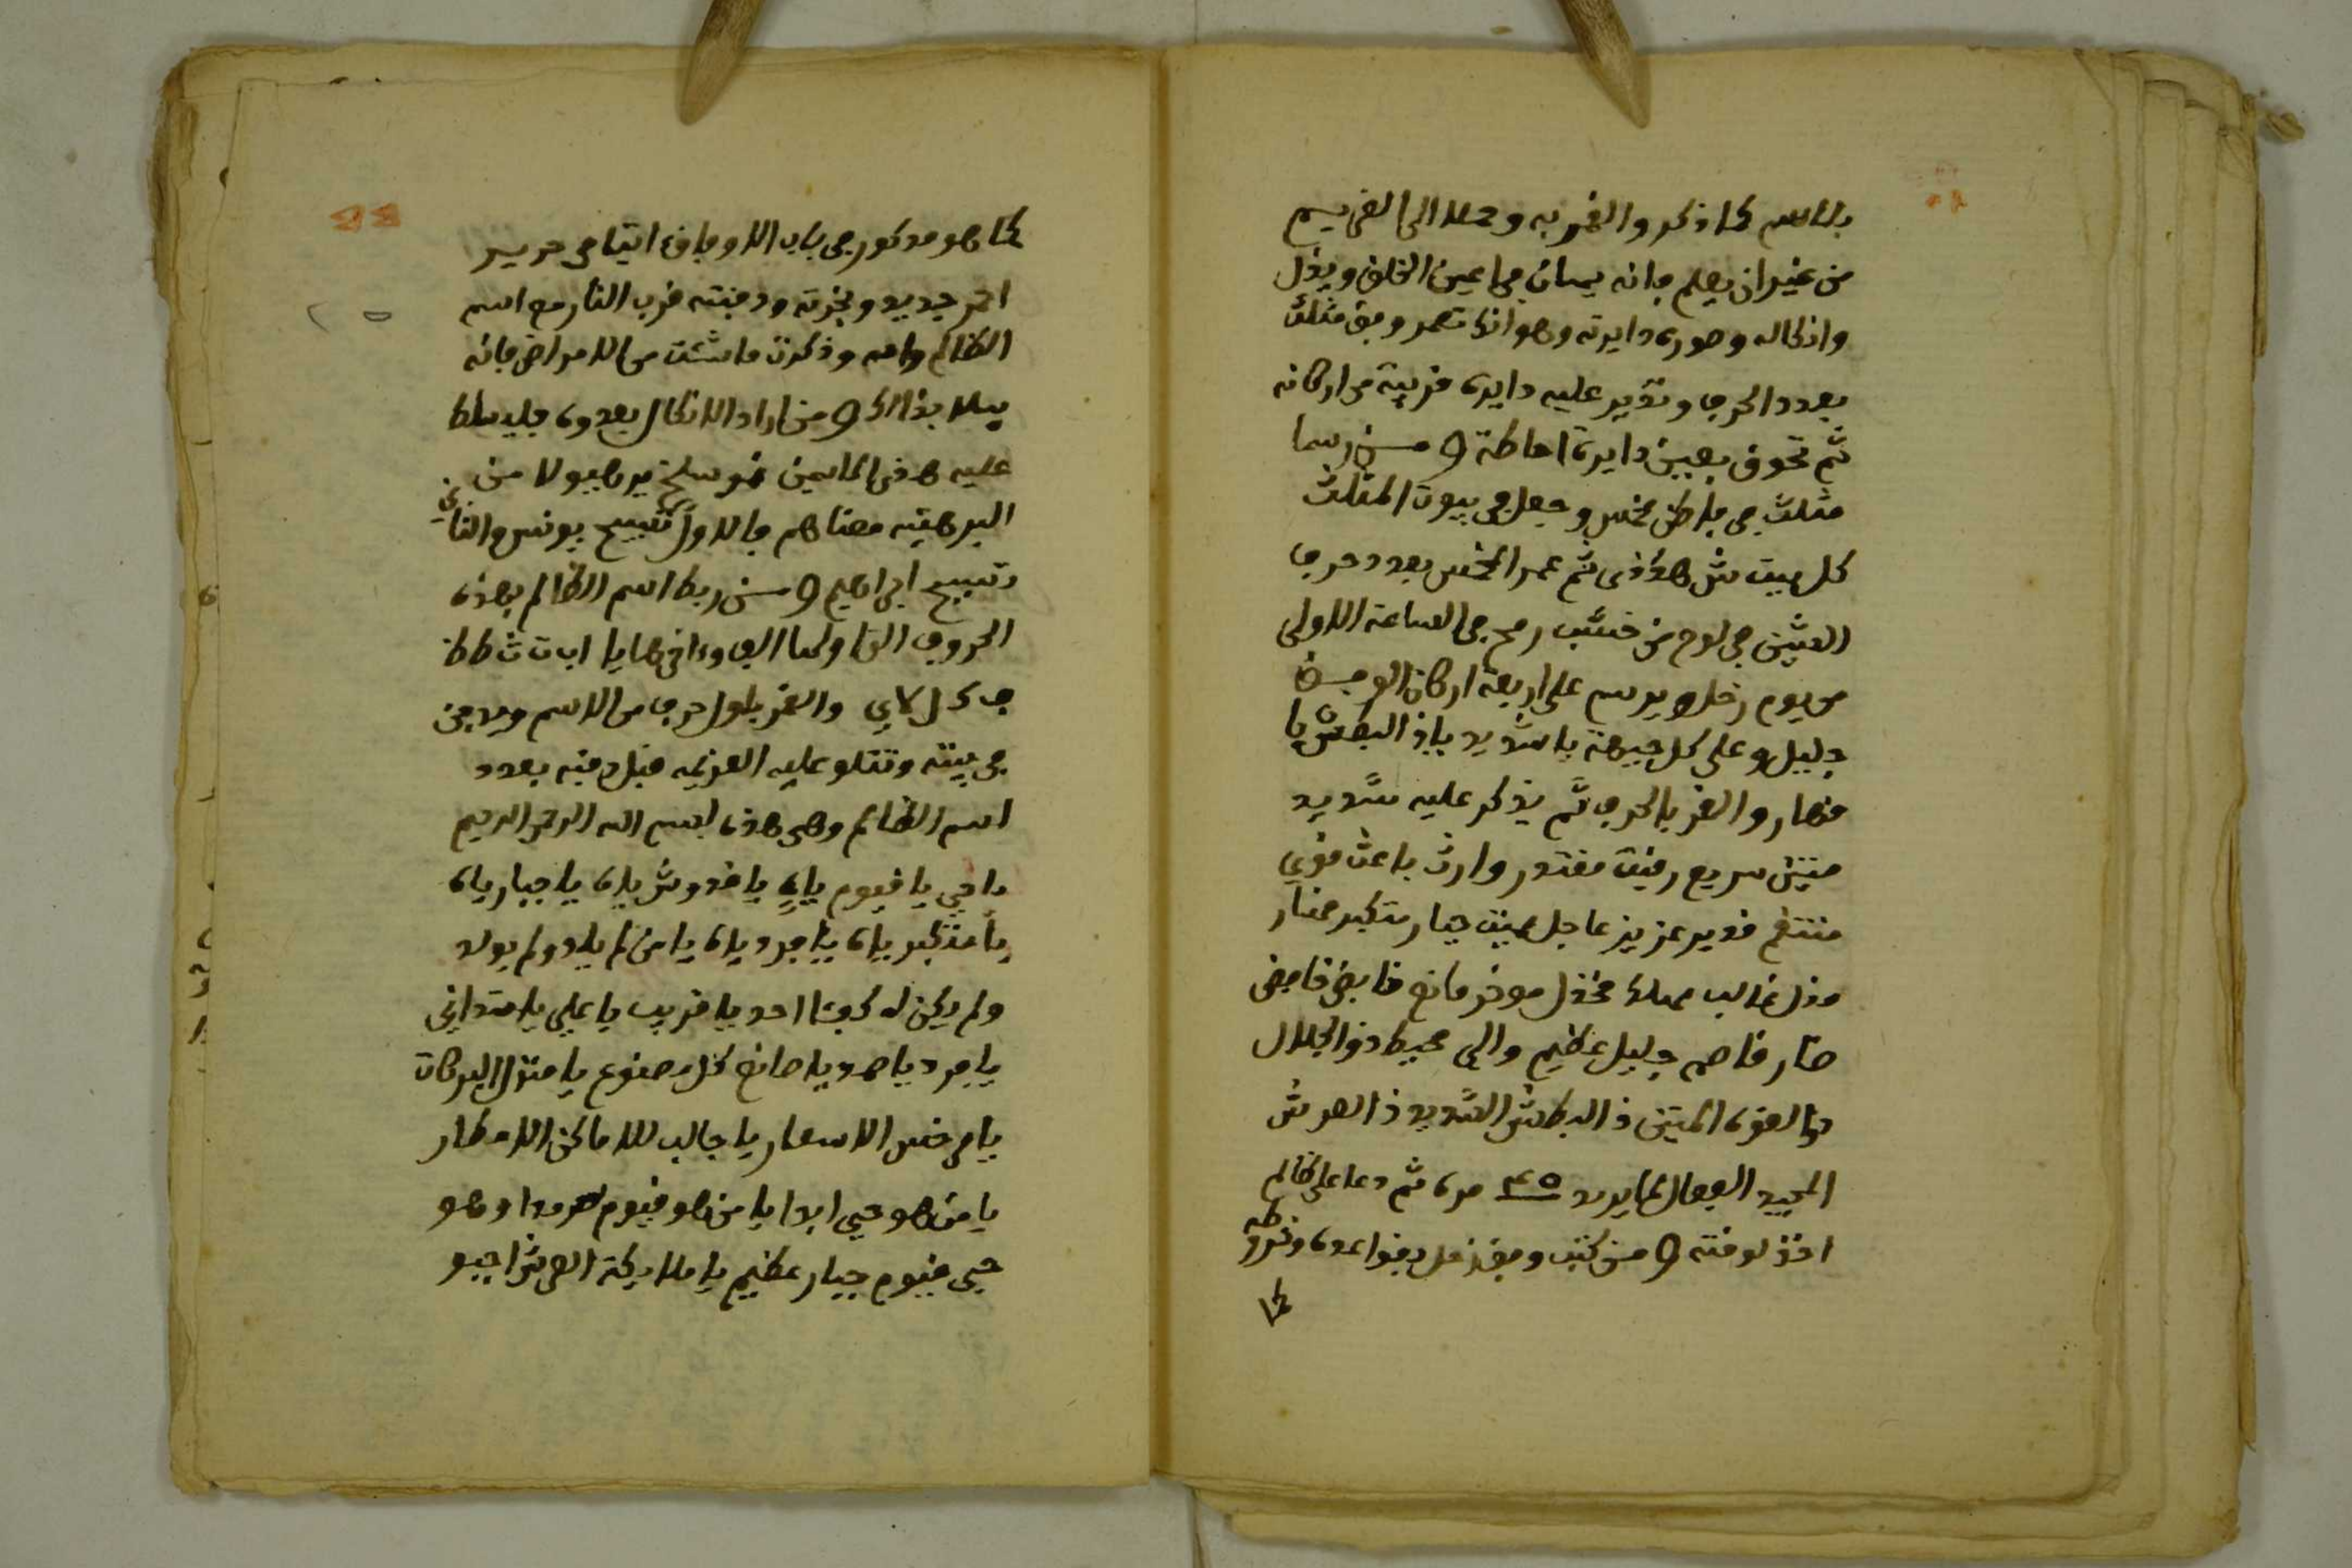 بالاسم كما ذكر والغمر به وحملا الى الغريم
من غير ان يعلم فانه يهان في اعين الخلق ويذل
وانكاله وصورة دايرته وهو انك تعمر وفق مثلث
بعدد الحرف وتدير عليه دايرة قريبة من اركانه
ثم تحوق بعين دايرة احاطة و من رسما
مثلث في باطن مخمس وجعل في بيوت المثلث
كل بيت ش هكذى ثم عمر المخمس بعدد حرف
الشين في لوح من خشب رمح في الساعة الاولى
من يوم زحل ويرسم على اربعة اركان الوفق
جليل وعلى كل جيهة يا شديد ياذ البطش يا
قهار والغمر بالحرف ثم يذكر عليه شديد
متين سريع رقيب مقتدر وارث باعث قوي
منتقم قدير عزيز عاجل مميت جبار متكبر قهار
مذل غالب مهلك مخذل موخر مانع قابض خافض
ضار قاصم جليل عظيم والي محيط ذو الجلال
ذو القوة المتين ذا البطش الشديد ذا العرش
المجيد الفعال لما يريد مرة ثم دعا على ظالم
اخذ لوقته و من كتب وفق زحل بقواعده وشروطه
كما
كما هو مذكور في باب الاوفاق اتيا في حرير
احمر جديد وبخرته ودفنته قرب النار مع اسم
الظالم وامه وذكرت ما شئت من الامراض فانه
يبلا بذالك و من اراد الانكال بعدوه فليسلط
عليه هذى الاسمين نموسلخ برهيولا من
البرهتيه معناهم فالاول تسبيح يونس والثاني
تسبيح ابراهيم و من ربط اسم الظالم بهذه
الحروف التا ولها الف وءاخرها يا اب ت ث ط ظ
ف ك ل لا ي والغمر باول حرف من الاسم ويدفن
في بيته وتتلو عليه العزيمه قبل دفنه بعدد
اسم الظالم وهي هذه بسم الله الرحمن الرحيم
يا حي يا قيوم ياه يا قدوش ياه يا جبار ياه
يا متكبر ياه يا فرد ياه يا من لم يلد ولم يولد
ولم يكن له كفؤا احد يا قريب يا علي يا متداني
يا فرد يا صمد يا صانع كل مصنوع يا منزل البركات
يا مرخس الاسعار يا جالب للاماكن الامطار
يا من هو حيي ابدا يا من هو قيوم سرمدا وهو
حيي قيوم جبار عظيم يا ملايكة العرش اجيبو